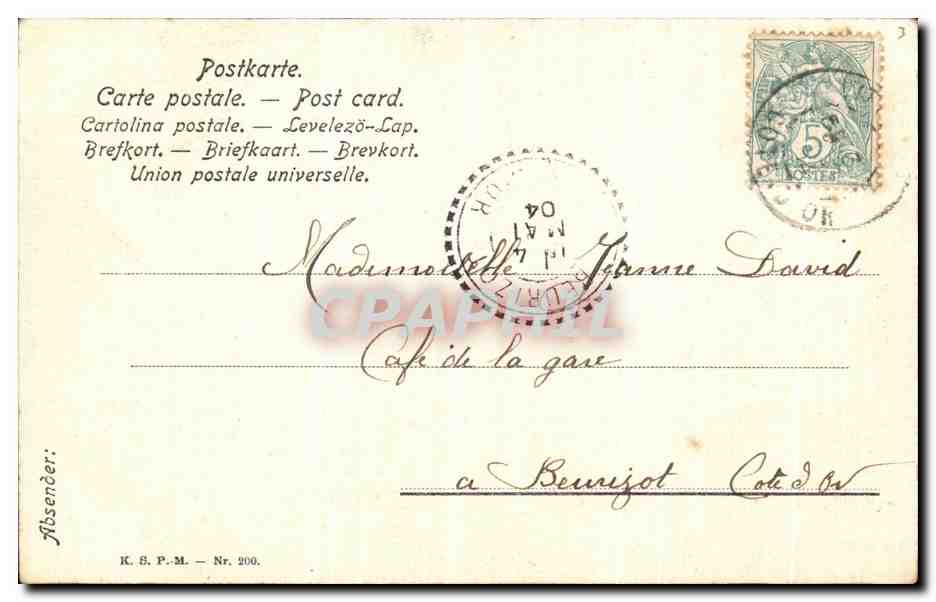 Postkarte.
Carte postale. — Post card.
Cartolina postale. — Levelező-Lap.
Brefkort. — Briefkaart. — Brevkort.
Union postale universelle.
3
5
POSTES
BEURIZOT
4
MAI
04
Mademoiselle Jeanne David
CPAPHIL
Café de la gare
a Beurizot Cote d'Or
Absender:
K. S. P.-M. — Nr. 200.